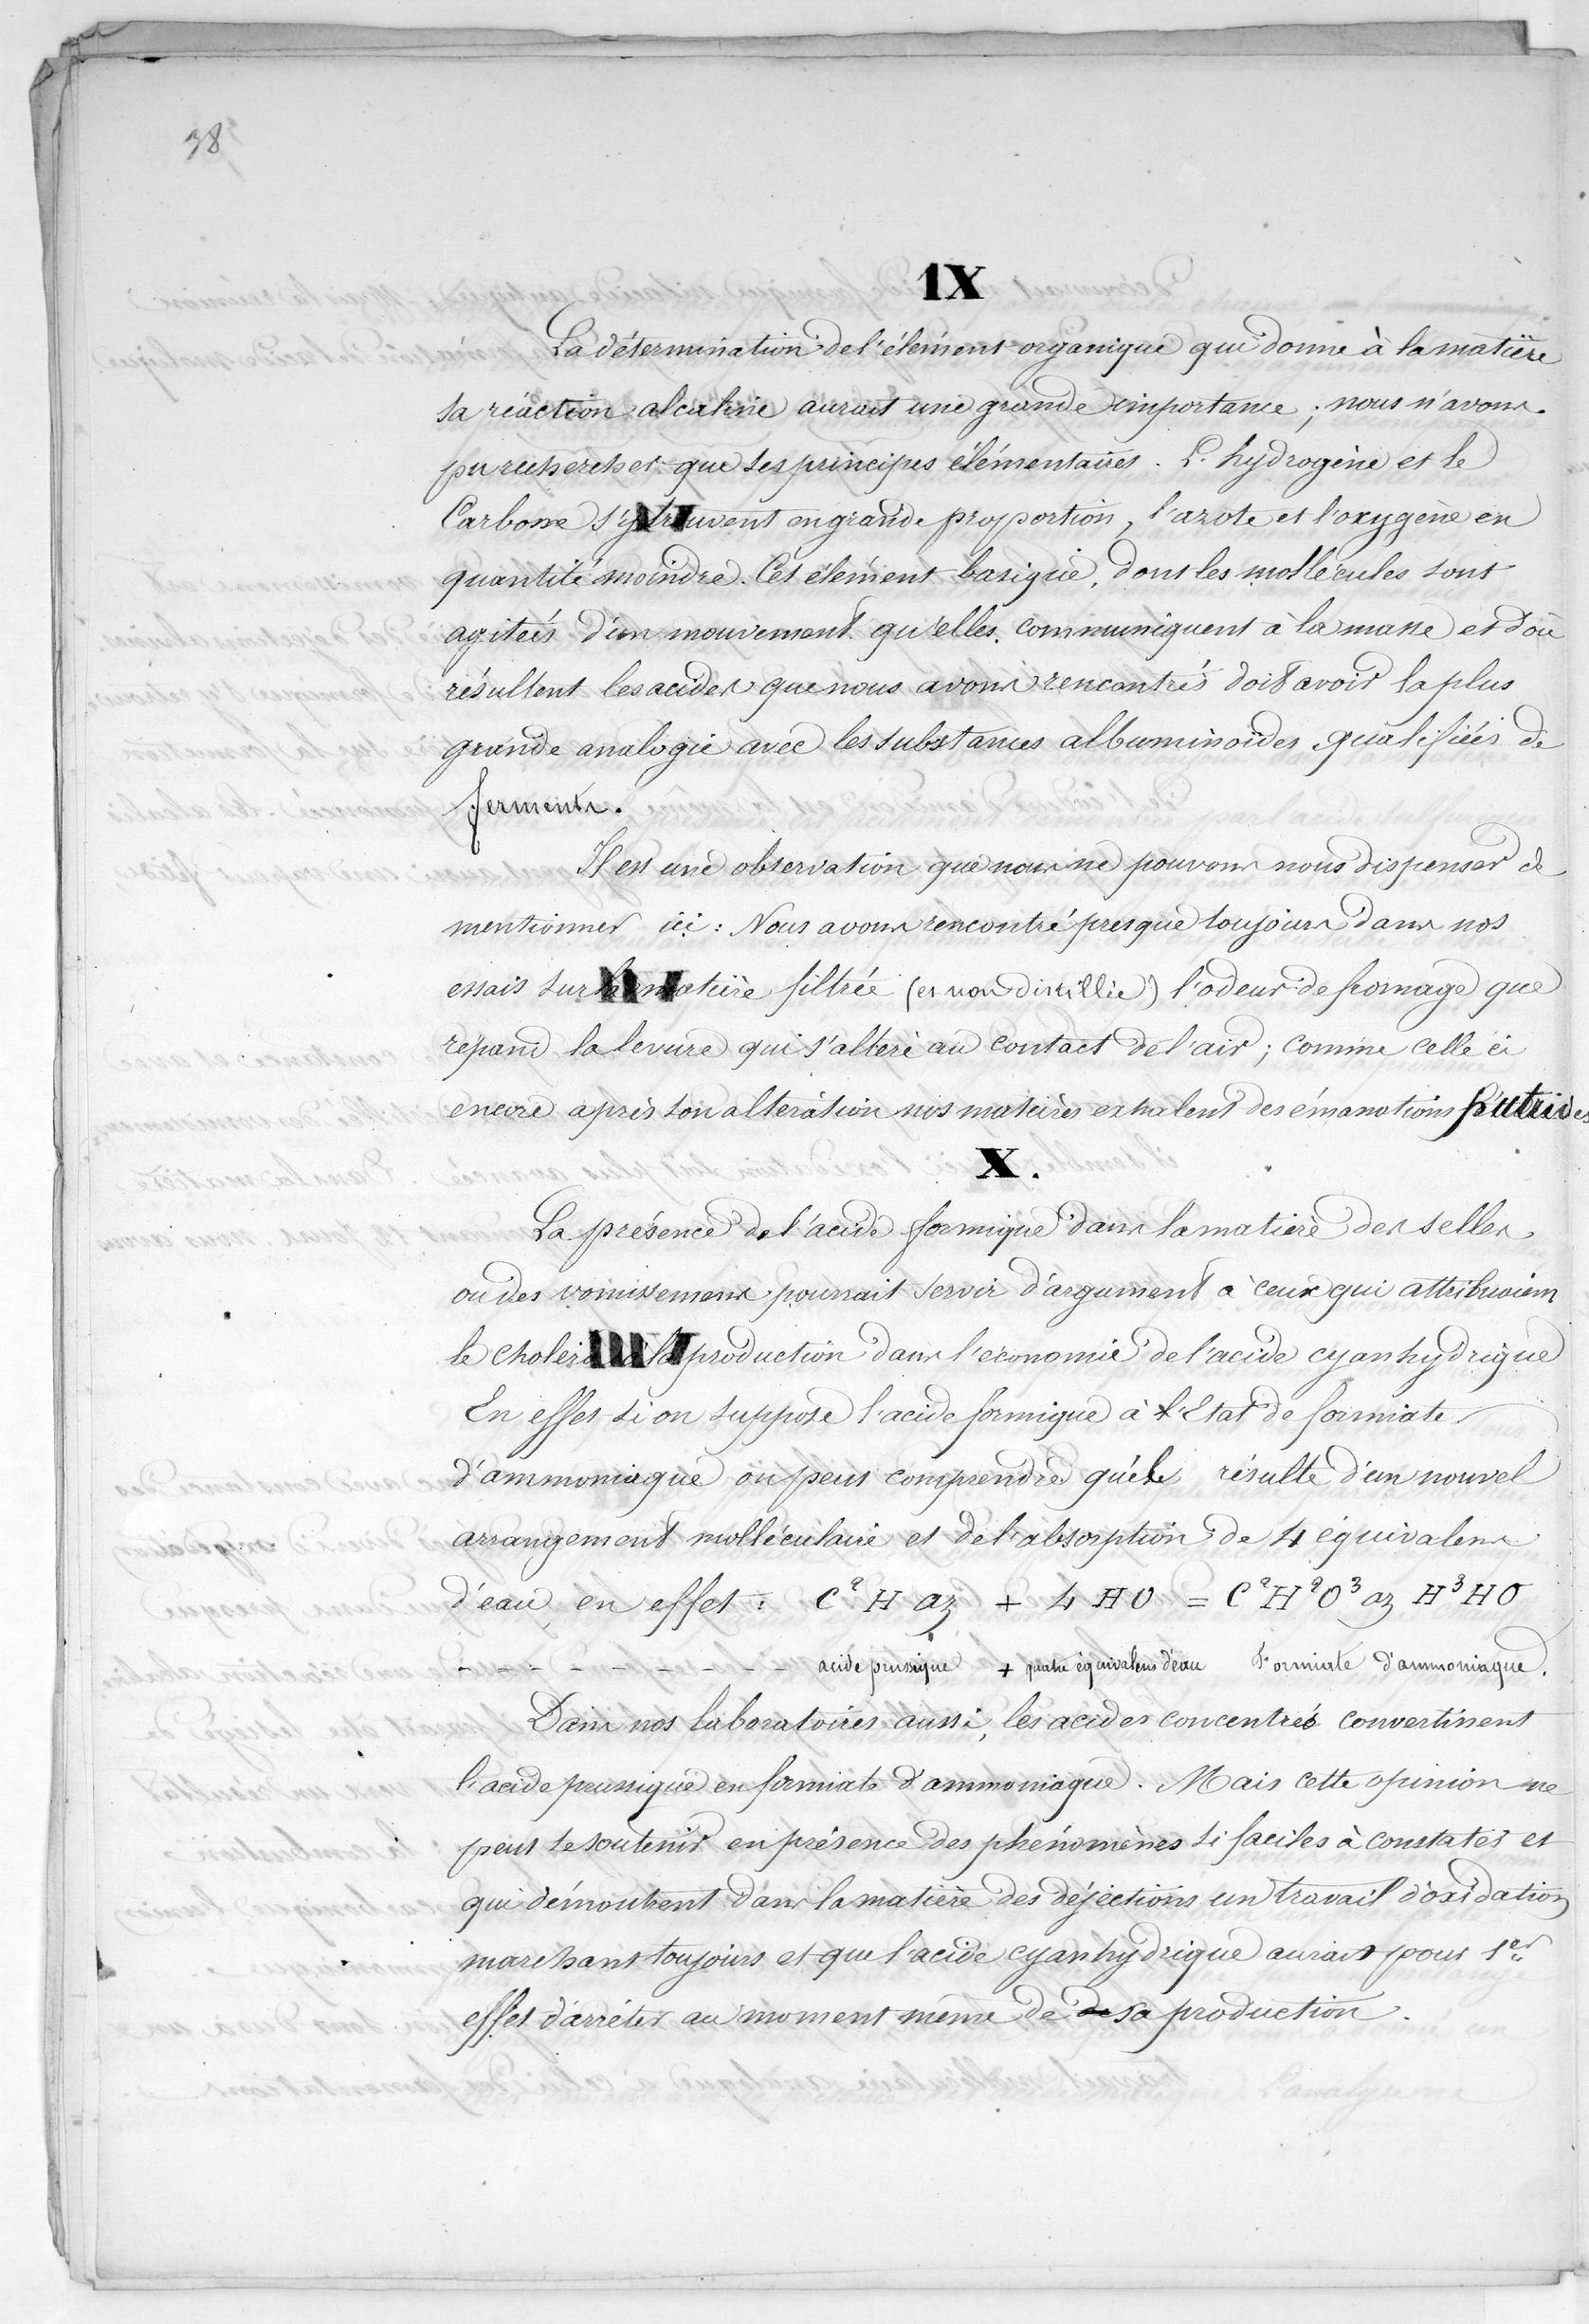 38
IX
La détermination de l'élément organique qui donne à la matière
sa réaction alcaline aurait une grande importance ; nous n'avons
pu rechercher que ses principes élémentaires. L'hydrogène et le
Carbone s'y trouvent en grande proportion, l'azote et l'oxygène en
quantité moindre. Cet élément basique, dont les mollécules sont
agitées d'un mouvement qu'elles communiquent à la masse et d'où
résultent les acides que nous avons rencontrés doit avoir la plus
grande analogie avec les substances albuminoïdes qualifiées de
ferments.
Il est une observation que nous ne pouvons nous dispenser de
mentionner ici : Nous avons rencontré presque toujours dans nos
essais sur la matière filtrée (et non distillée) l'odeur de fromage que
répand la levure qui s'altère au contact de l'air ; comme celle ci
encore après son altération nos matières exhalent des émanations putrides
X.
La présence de l'acide formique dans la matière des selles
ou des vomissemens pourrait servir d'argument à ceux qui attribuaient
le choléra à la production dans l'économie de l'acide cyanhydrique
En effet si on suppose l'acide formique à l'Etat de formiate
d'ammoniaque on peut comprendre qu'elle résulte d'un nouvel
arrangement molléculaire et de l'absorption de 4 équivalens
d'eau, en effet : C² H az + 4 HO = C² H² O³ az H³ HO
- - - - - - - - - acide prussique + quatre équivalens d'eau Formiate d'ammoniaque.
Dans nos laboratoires aussi, les acides concentrés convertissent
l'acide prussique en formiate d'ammoniaque. Mais cette opinion ne
peut se soutenir en présence des phénomènes si faciles à constater et
qui démontrent dans la matière des déjections un travail d'oxidation
marchant toujours et que l'acide cyanhydrique aurait pour 1er
effet d'arrêter au moment même de de sa production.